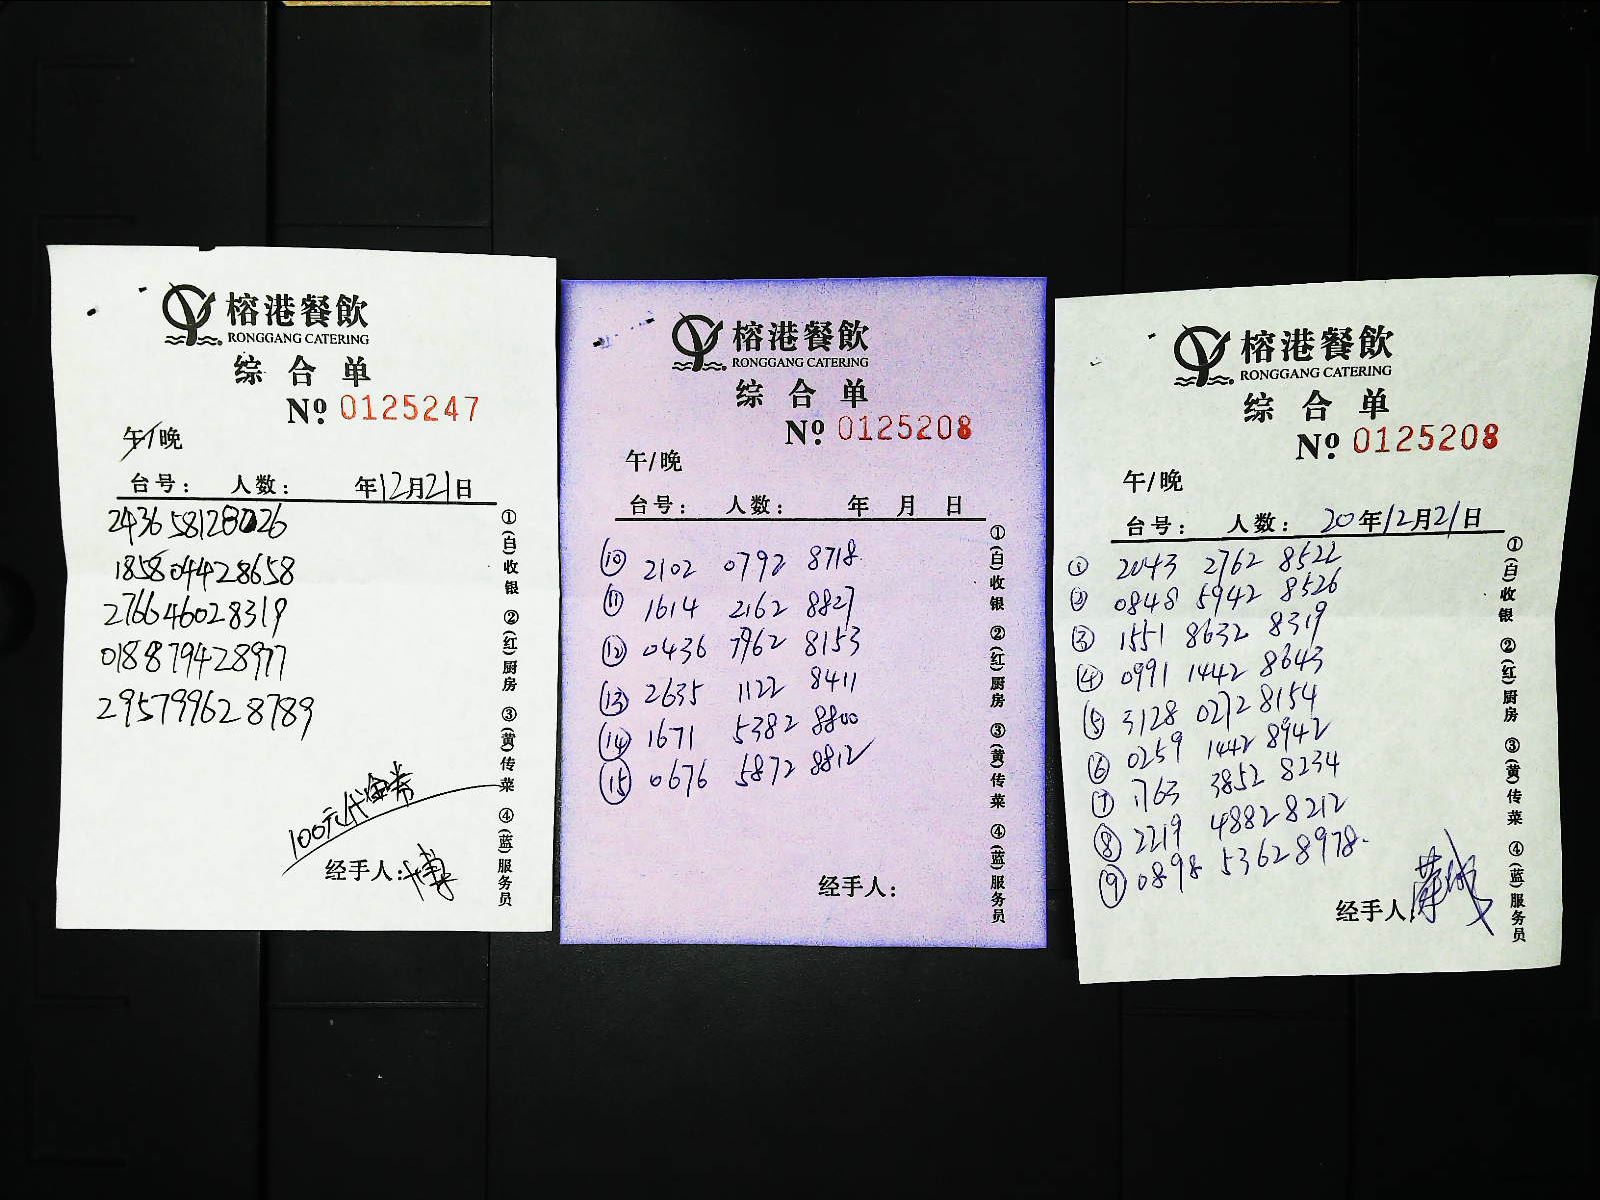 榕港餐飲
RONGGANG CATERING
综合单
№ 0125247
午/晚
台号： 人数： 年12月21日
2436 58128026
185804428658
276646028319
018879428977
295799628789
100元代金券
经手人：博
①(白)收银 ②(红)厨房 ③(黄)传菜 ④(蓝)服务员
榕港餐飲
RONGGANG CATERING
综合单
№ 0125208
午/晚
台号： 人数： 年 月 日
⑩ 2102 0792 8718
⑪ 1614 2162 8827
⑫ 0436 7962 8153
⑬ 2635 1122 8411
⑭ 1671 5382 8800
⑮ 0676 5872 8812
经手人：
①(白)收银 ②(红)厨房 ③(黄)传菜 ④(蓝)服务员
榕港餐飲
RONGGANG CATERING
综合单
№ 0125208
午/晚
台号： 人数： 20年12月21日
① 2043 2762 8522
② 0848 5942 8526
③ 1551 8632 8319
④ 0991 1442 8643
⑤ 3128 0272 8154
⑥ 0259 1442 8942
⑦ 1763 3852 8234
⑧ 2219 4882 8212
⑨ 0898 5362 8978.
经手人
①(白)收银 ②(红)厨房 ③(黄)传菜 ④(蓝)服务员